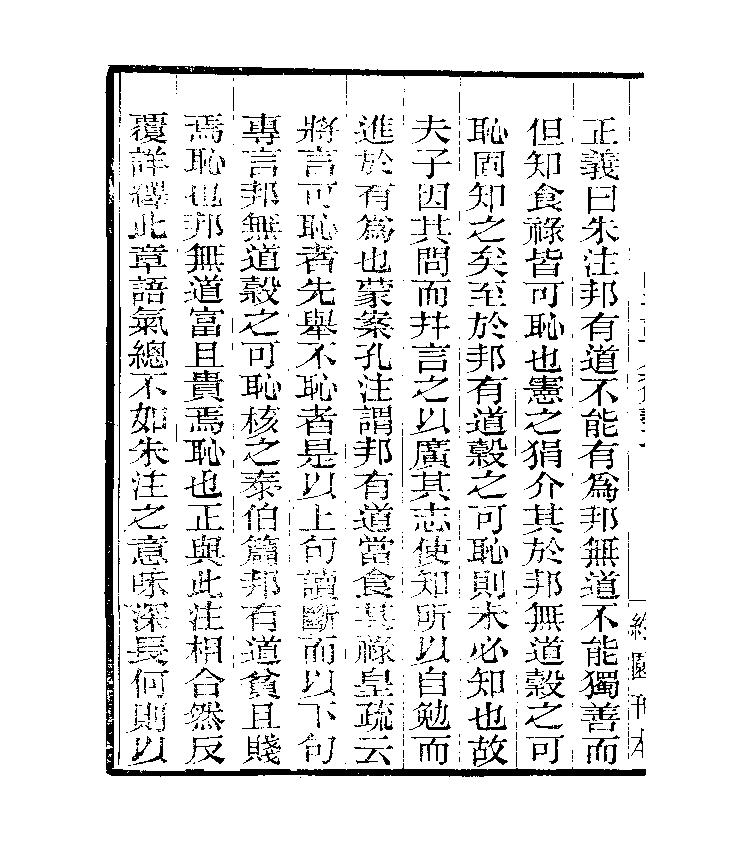 正義曰朱注邦有道不能有為邦無道不能獨善而
但知食祿皆可恥也憲之狷介其於邦無道穀之可
恥固知之矣至於邦有道穀之可恥則未必知也故
夫子因其問而并言之以廣其志使知所以自勉而
進於有為也蒙案孔注謂邦有道當食其祿皇疏云
將言可恥者先舉不恥者是以上句讀斷而以下句
專言邦無道穀之可恥核之泰伯篇邦有道貧且賤
焉恥也邦無道富且貴焉恥也正與此注相合然反
覆詳繹此章語氣總不如朱注之意味深長何則以
刊本